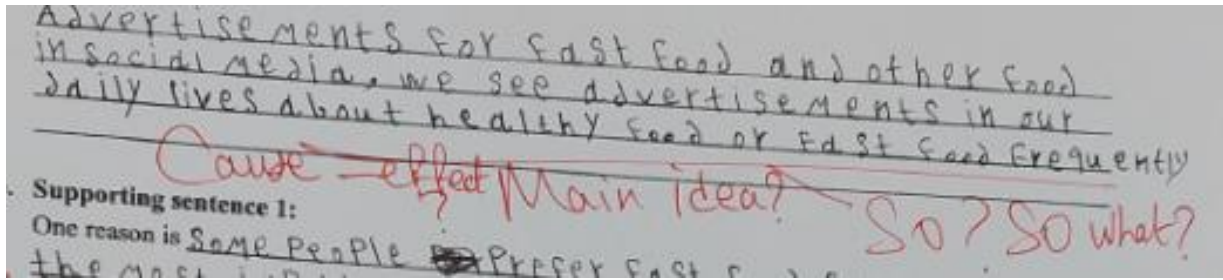 Advertisements for fast food and other food
in social media, we see advertisements in our
daily lives about healthy food or fast food frequently
Cause-effect Main idea? So? So what?
?
. Supporting sentence 1:
One reason is Some people prefer fast
the most